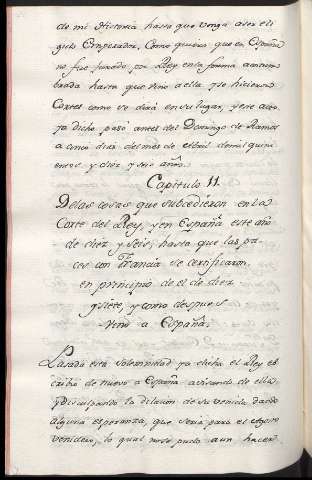 de mi Historia hasta que venga a ser eli
gido Emperador, Como quiera que en España
no fue jurado por Rey en la forma acostum
brada hasta que vino a ella y se hicieron
Cortes como se dirá en su lugar, y este acto
ya dicho pasó antes del Domingo de Ramos
a cinco dias del mes de Abril de mil quini
entos y diez y seis años.
Capitulo 11.
De las cosas que subcedieron en la
Corte del Rey, y en España este año
de diez y seis, hasta que las pa-
ces con Francia se certificaron,
en principio de el de diez
y siete, y como despues
vino a España.
Pasada esta solemnidad ya dicha el Rey es
cribio de nuevo a España avisando de ella
y disculpando la dilacion de su venida dando
alguna esperanza, que seria para el Agosto
venidero, lo qual no se pudo aun hacer